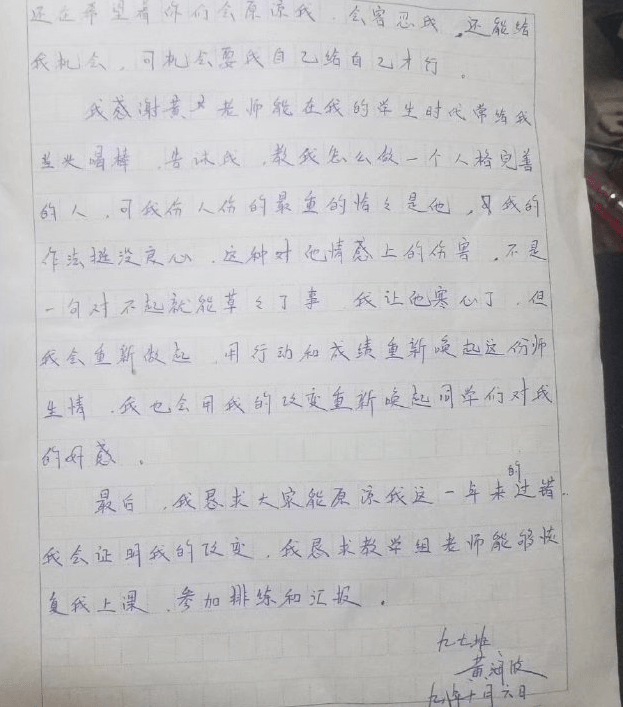 还在希望着你们会原谅我，会容忍我，还能给
我机会，可机会要我自己给自己才行。
我感谢黄 老师能在我的学生时代常给我
当头喝棒，告诉我，教我怎么做一个人格完善
的人，可我伤人伤的最重的恰々是他，我的
作法挺没良心，这种对他情感上的伤害，不是
一句对不起就能草々了事 我让他寒心了，但
我会重新做起，用行动和成绩重新唤起这份师
生情，我也会用我的改变重新唤起同学们对我
的好感。
最后，我恳求大家能原谅我这一年来的过错..
我会证明我的改变，我恳求教学组老师能够恢
复我上课，参加排练和汇报。
九七班
黄
九八年十月六日